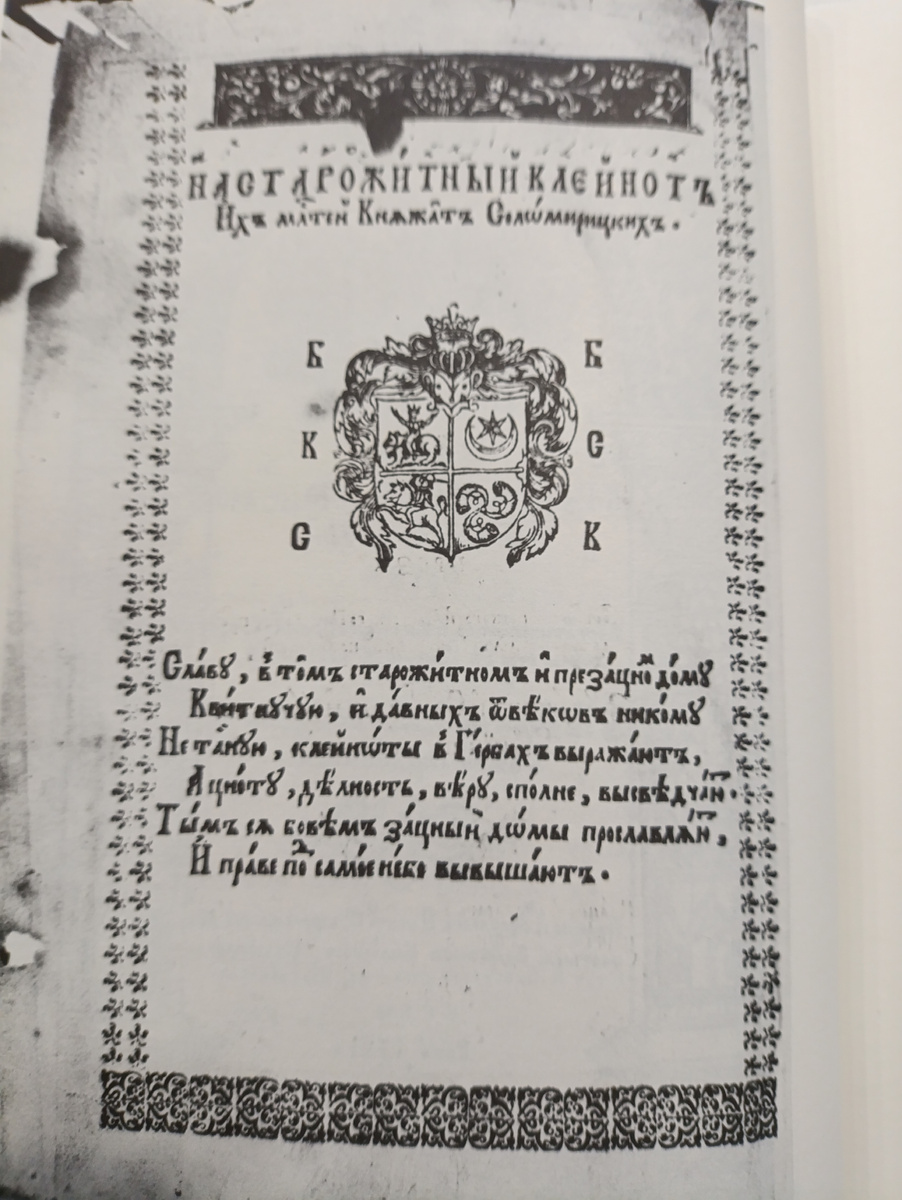 НАСТАРОЖИ́ТНЫЙ КЛЕЙНОТЪ
Ихъ мл̃тей Кнѧжа́тъ Соломирицкихъ.
Б Б
К С
С К
Сла́ву, в то́мъ старожи́тномъ и҆ преза́цно͏ⷨ до́му
Кви́тнучую, и҆ да́вныхъ ѿвѣ́кѡвъ нико́му
Не та́йную, клейнѡ́ты в Ге́рбахъ выража́ютъ,
А цно́ту, дѣ́лность, вѣ́ру, спо́лне, высвѣ́дча́ю͏ⷮ.
Ты́мъ сѧ бовѣ́мъ за́цныи дѡ́мы прославлѧ́ю͏ⷮ,
И҆ пра́ве по͏ⷣ само́е не́бо вывыша́ютъ.